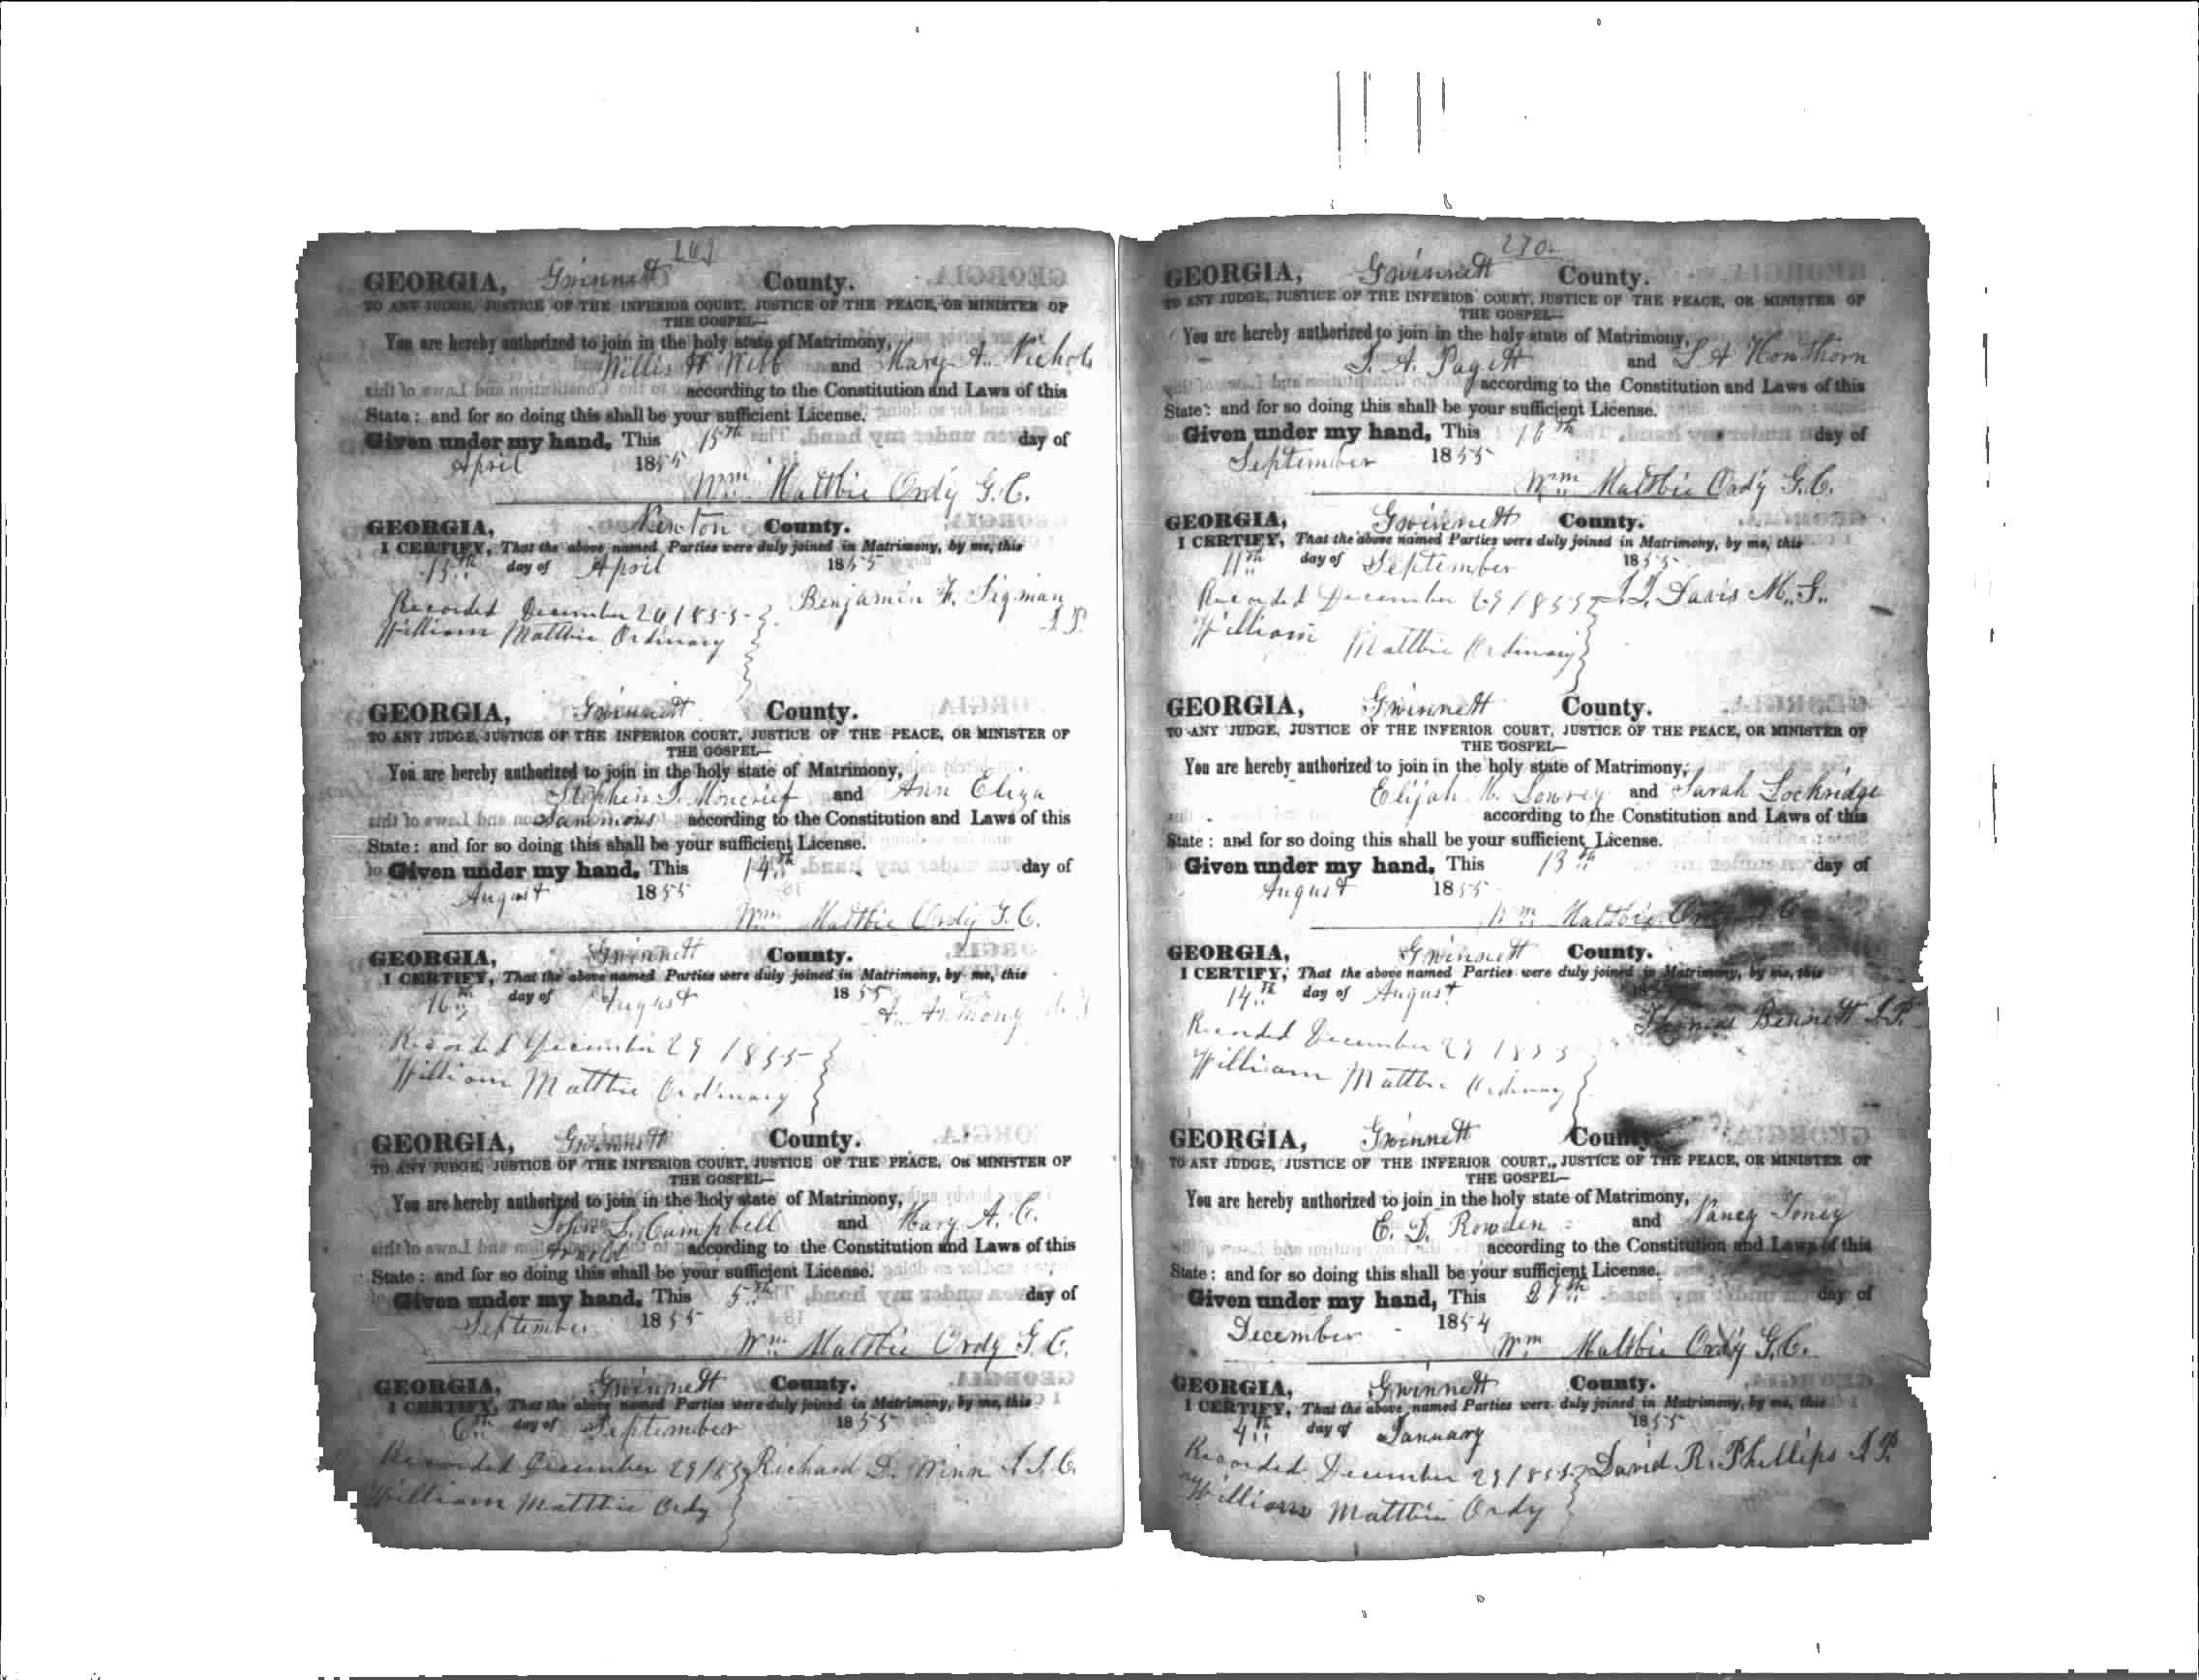 GEORGIA, Gwinnett County.
TO ANY JUDGE, JUSTICE OF THE INFERIOR COURT, JUSTICE OF THE PEACE, OR MINISTER OF
THE GOSPEL—
You are hereby authorized to join in the holy state of Matrimony,
Willis H Webb and Mary A. Nichols
according to the Constitution and Laws of this
State: and for so doing this shall be your sufficient License.
Given under my hand, This 15th day of
April 1855
Wm Maltbie Ordy G.C.
GEORGIA, Newton County.
I CERTIFY, That the above named Parties were duly joined in Matrimony, by me, this
15th day of April 1855
Recorded December 1855 Benjamin F. Sigman
William Maltbie Ordinary J.P.
GEORGIA, Gwinnett County.
TO ANY JUDGE, JUSTICE OF THE INFERIOR COURT, JUSTICE OF THE PEACE, OR MINISTER OF
THE GOSPEL—
You are hereby authorized to join in the holy state of Matrimony,
Stephen Moncrief and Ann Eliza
Sammons according to the Constitution and Laws of this
State: and for so doing this shall be your sufficient License.
Given under my hand, This 14th day of
August 1855
Wm Maltbie Ordy G.C.
GEORGIA, Gwinnett County.
I CERTIFY, That the above named Parties were duly joined in Matrimony, by me, this
16th day of August 1855
Recorded December 29 1855
William Maltbie Ordinary
GEORGIA, Gwinnett County.
TO ANY JUDGE, JUSTICE OF THE INFERIOR COURT, JUSTICE OF THE PEACE, OR MINISTER OF
THE GOSPEL—
You are hereby authorized to join in the holy state of Matrimony,
John S. Campbell and Mary A. C.
according to the Constitution and Laws of this
State: and for so doing this shall be your sufficient License.
Given under my hand, This 5th day of
September 1855
Wm Maltbie Ordy G.C.
GEORGIA, Gwinnett County.
I CERTIFY, That the above named Parties were duly joined in Matrimony, by me, this
6th day of September 1855
Recorded December 29 1855 Richard D. Winn J.I.C.
William Maltbie Ordy
270
GEORGIA, Gwinnett County.
TO ANY JUDGE, JUSTICE OF THE INFERIOR COURT, JUSTICE OF THE PEACE, OR MINISTER OF
THE GOSPEL—
You are hereby authorized to join in the holy state of Matrimony,
Pagett and S A
according to the Constitution and Laws of this
State: and for so doing this shall be your sufficient License.
Given under my hand, This day of
September 1855
Wm Maltbie Ordy G.C.
GEORGIA, Gwinnett County.
I CERTIFY, That the above named Parties were duly joined in Matrimony, by me, this
11th day of September 1855
Recorded December 29 1855 Davis M.G.
William Maltbie Ordinary
GEORGIA, Gwinnett County.
TO ANY JUDGE, JUSTICE OF THE INFERIOR COURT, JUSTICE OF THE PEACE, OR MINISTER OF
THE GOSPEL—
You are hereby authorized to join in the holy state of Matrimony,
Elijah Lowrey and Sarah Lockridge
according to the Constitution and Laws of this
State: and for so doing this shall be your sufficient License.
Given under my hand, This 13th day of
August 1855
Wm Maltbie Ordy G.C.
GEORGIA, Gwinnett County.
I CERTIFY, That the above named Parties were duly joined in Matrimony, by me, this
14th day of August
Thomas Bennett J.P.
Recorded December 29 1855
William Maltbie Ordinary
GEORGIA, Gwinnett County.
TO ANY JUDGE, JUSTICE OF THE INFERIOR COURT, JUSTICE OF THE PEACE, OR MINISTER OF
THE GOSPEL—
You are hereby authorized to join in the holy state of Matrimony,
E. D. Rowden and Nancy Toney
according to the Constitution and Laws of this
State: and for so doing this shall be your sufficient License.
Given under my hand, This day of
December 1854
Wm Maltbie Ordy G.C.
GEORGIA, Gwinnett County.
I CERTIFY, That the above named Parties were duly joined in Matrimony, by me, this
4th day of January 1855
Recorded December 29 1855 David R. Phillips J.P.
William Maltbie Ordy